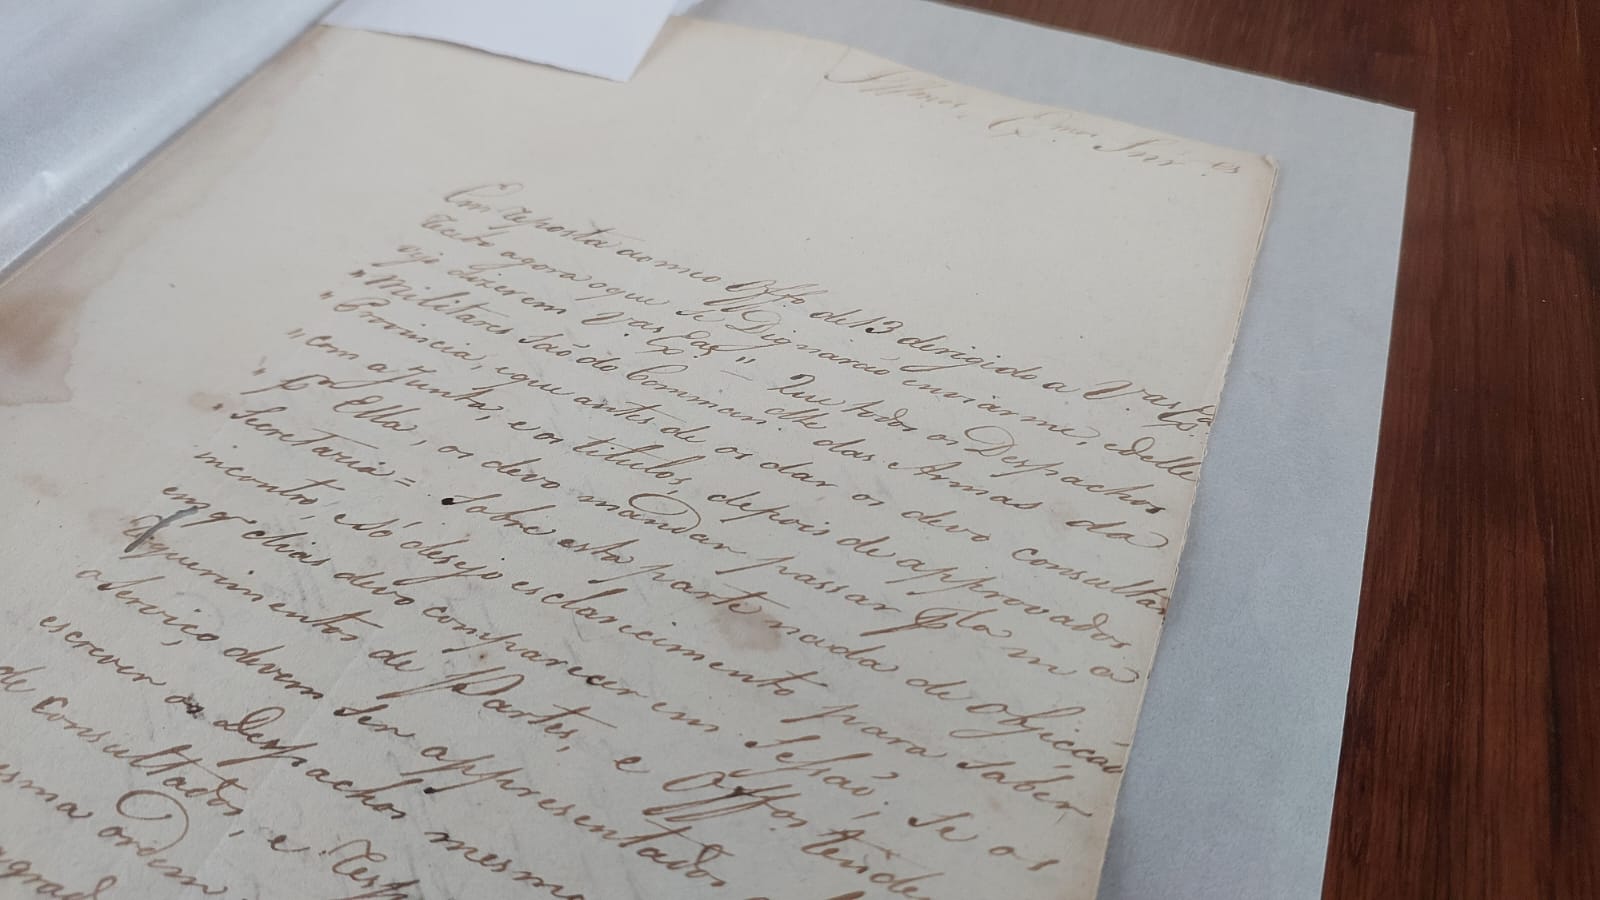 Illmos. e Exmos. Snr.es
Em reposta ao meo Offo. de 13 derigido a V.as Ex.as
recebo agora o que se Dignarão enviarme, e delle
vejo dizerem V.as Ex.as " Que todos os Despachos
" Militares são do Comman.te das Armas da
" Provincia, e que antes de os dar os devo consultar
" com a Junta, e os titulos, depois de approvados
" p.r Ella, os devo mandar passar pla m.a
" Secretaria = Sobre esta parte nada de Opicão
incontro, e só desejo esclarecimento para saber
em q.e dias devo comparecer em Sessão; se os
requerimentos de Partes, e Offos. tende
a Serviço devem ser appresentados
escrever os Despachos mesmo
de consultados, e
esma ordem
agrad